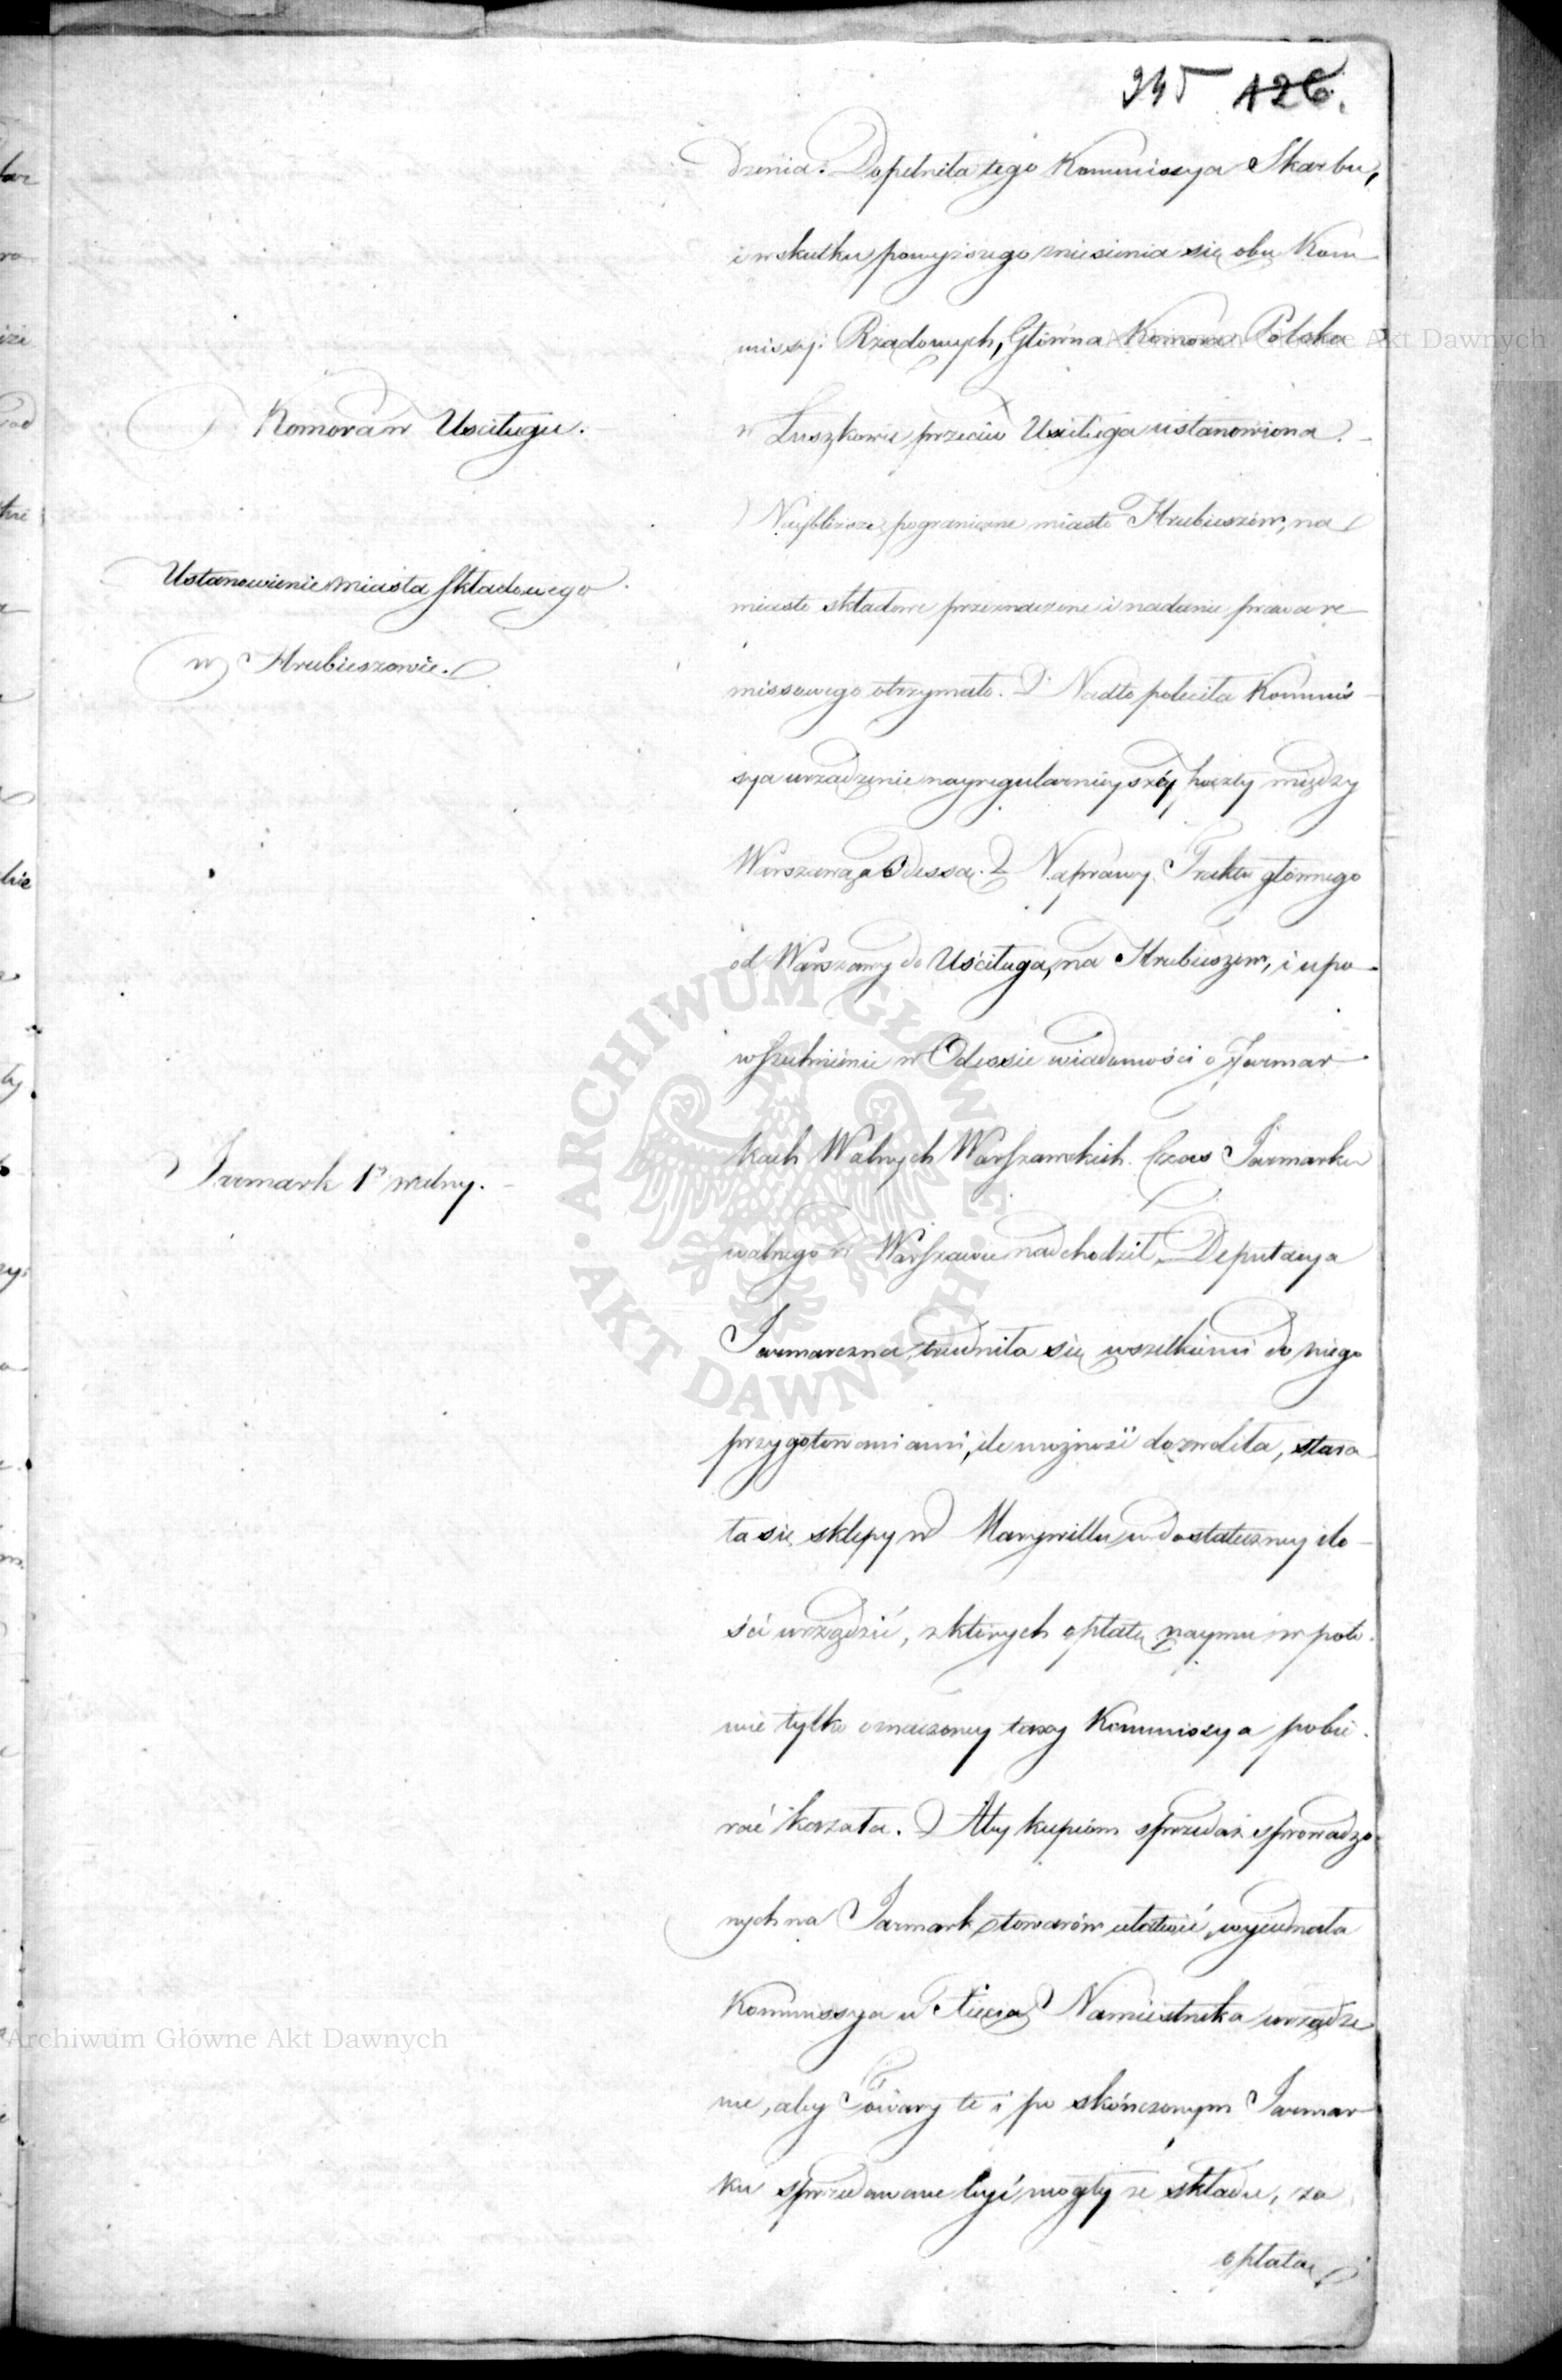 945 126.
dzenia. Dopełniła tego Kommissya Skarbu,
i w skutku powyższego zniesienia się obu Kom
missyi Rządowych, Główna Komora Polska
Komora w Uściługu.
w Łuszkowie przeciw Uściługa ustanowiona.
Naybliższe pograniczne miasto Hrubieszów, na
Ustanowienie miasta składowego
miasto składowe przeznaczone i nadanie prawa re
w Hrubieszowie.
missowego otrzymało. Nadto poleciła Kommis
sya urządzenie nayregularnieyszéy poczty między
Warszawą a Odessą. Naprawy Traktu głównego
od Warszawy do Uściługa, na Hrubieszów, i upo
wszechnienie w Odessie wiadomości o Jarmar
Jarmark 1y walny.
kach Walnych Warszawskich. Czas Jarmarku
walnego w Warszawie nadchodził, Deputacya
Jarmarczna, trudniła się wszelkiemi do niego
przygotowaniami, ile możność dozwoliła, stara
ła się sklepy w Marywillu w dostateczney ilo
ści urządzić, z których opłatę naymu w poło
wie tylko oznaczoney taxy Kommissya pobie
rać kazała. Aby kupcom sprzedaż sprowadzo
nych na Jarmark towarów ułatwić, wyjednała
Kommissya u Xięcia Namiestnika urządze
nie, aby Towary te i po skończonym Jarmar
ku sprzedawane być mogły ze składu, za
opłatą
Archiwum Główne Akt Dawnych
Archiwum Główne Akt Dawnych
ARCHIWUM GŁÓWNE AKT DAWNYCH